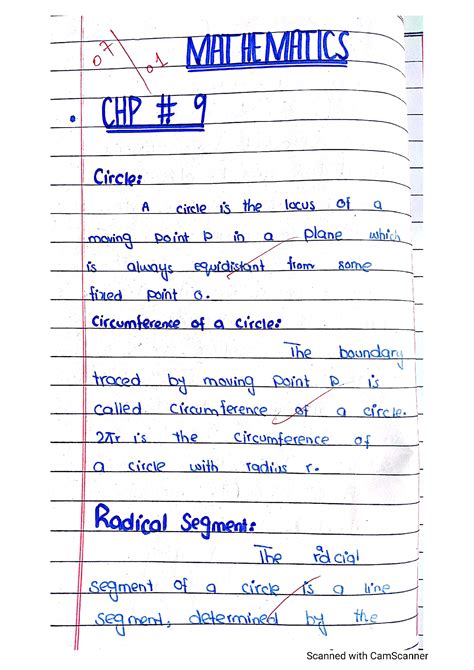 07/01
MATHEMATICS
• CHP # 9
Circle:
A circle is the locus of a
moving point P in a plane which
is always equidistant from some
fixed point o.
Circumference of a circle:
The boundary
traced by moving point P is
called circumference of a circle.
2πr is the circumference of
a circle with radius r.
Radical Segment:
The radcial
segment of a circle is a line
segment, determined by the
Scanned with CamScanner